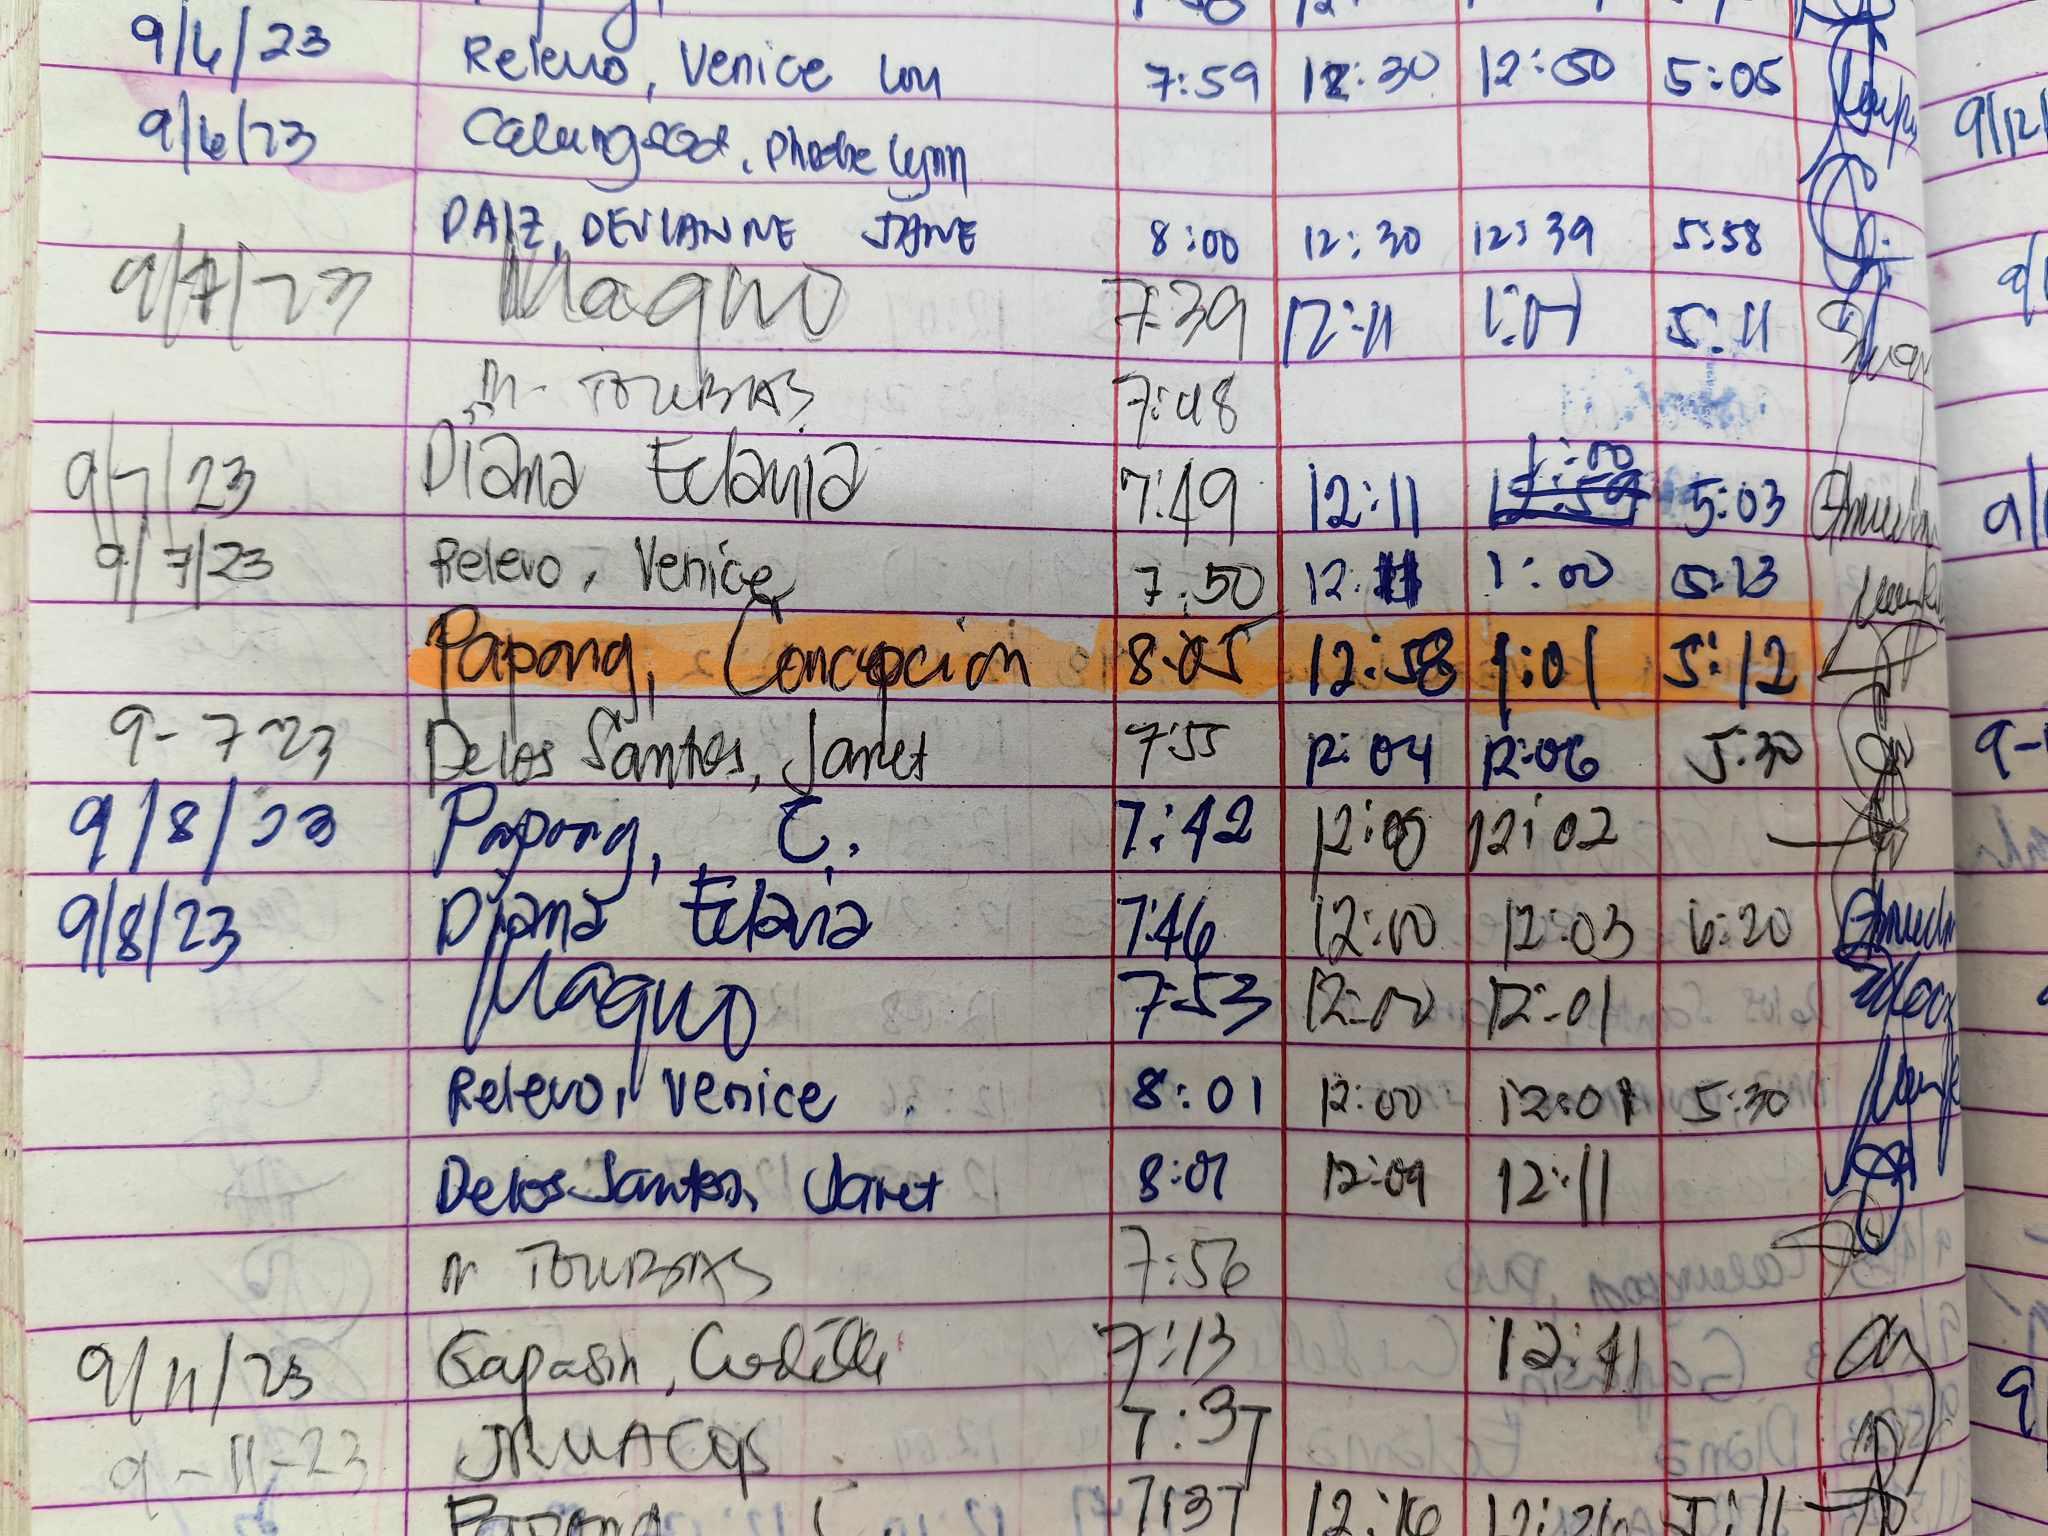 9/6/23 Relevo, Venice Lou 7:59 12:30 12:50 5:05
9/6/23 Calungsod, Phoebe Lynn
DAIZ, DEVIANNE JANE 8:00 12:30 12:39 5:58
9/7/23 Magno 7:39 12:11 1:01 5:11
7:48
9/7/23 Diana Eclavia 7:49 12:11 1:00 5:03
9/7/23 Relevo, Venice 7:50 12:11 1:00 5:13
Papong, Concepcion 8:05 12:58 1:01 5:12
9-7-23 Delos Santos, Janet 7:55 12:04 12:06 5:30
9/8/23 Papong, C. 7:42 12:00 12:02
9/8/23 Diana Eclavia 7:46 12:00 12:03 6:20
Magno 7:53 12:00 12:01
Relevo, Venice 8:01 12:00 12:01 5:30
Delos Santos, Janet 8:01 12:09 12:11
7:56
9/11/23 Gapasin, 7:13 12:41
9-11-23 7:37
Papong C 7:37 12:16 12:26 5:11